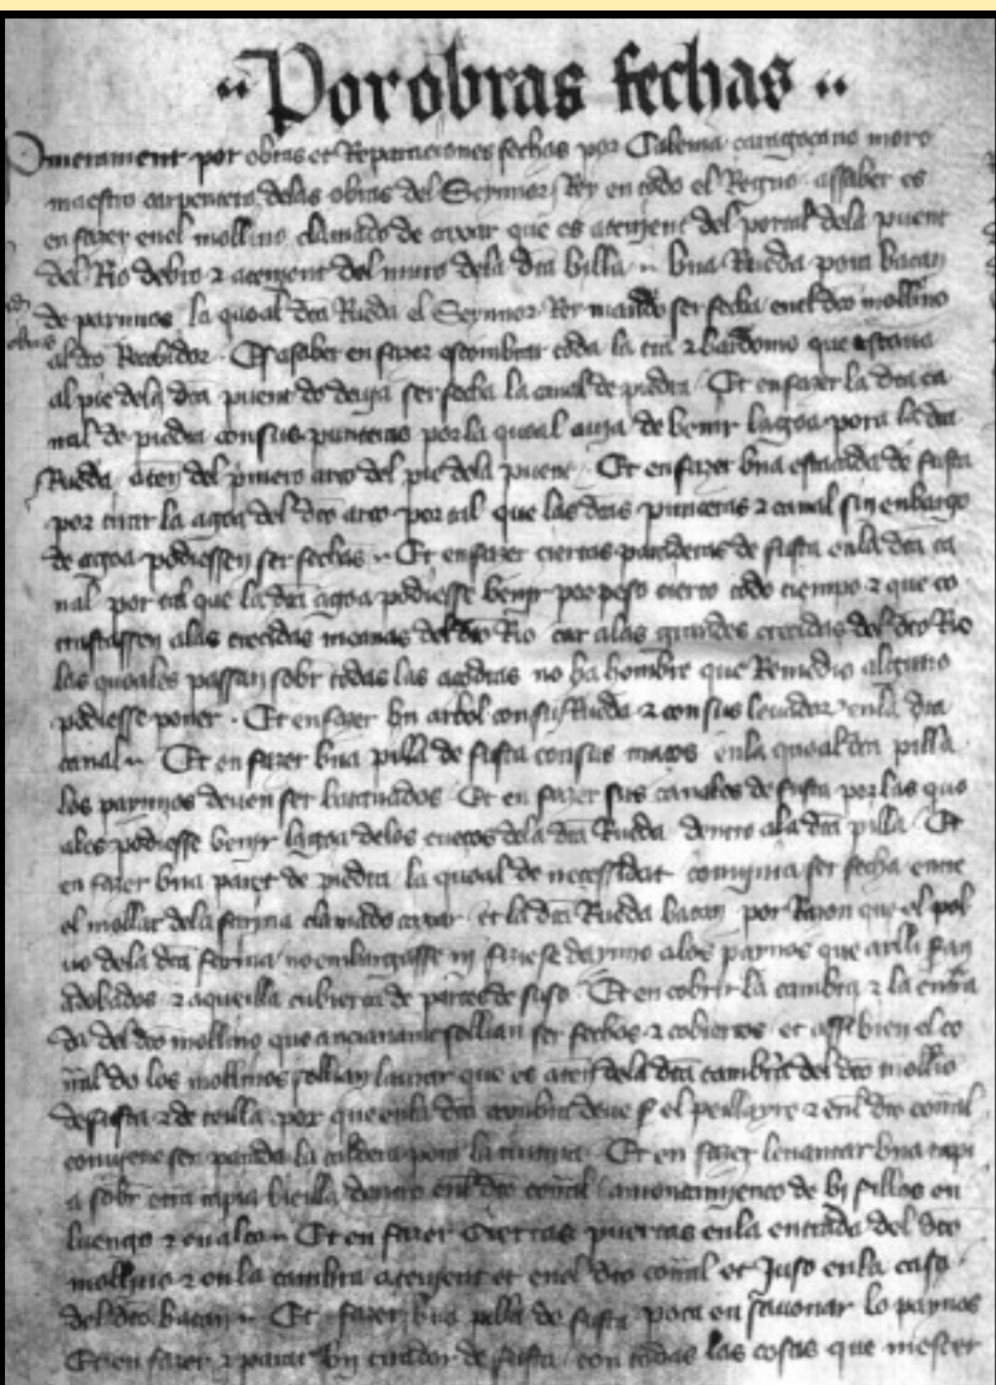 Por obras fechas
Primerament por obras et Reparaciones fechas por Calema caragoçano moro
maestro carpentero delas obras del Seynnor Rey en todo el Regno assaber es
en fazer enel mollino clamado de açar que es atenient del portal dela puent
del Rio debro 2 atenient del muro dela dta billa bna Rueda pora batan
de paynnos la qual dta Rueda el Seynnor Rey mando ser fecha enel dto mollino
al dto Recebidor Et asaber en fazer escombrar toda la tra 2 que estaua
al pie dela dta puent do deuja ser fecha la canal de piedra Et en fazer la dta ca
nal de piedra con sus por la qual auja de benir lagoa pora la dta
Rueda del primero arco del pie dela puent Et en fazer bna estacada de fusta
por tirar la agoa del dto arco por tal que las dtas 2 canal sin enbargo
de agoa podiessen ser fechas Et en fazer ciertas de fusta enla dta ca
nal por tal que la dta agoa podiesse benir por peso cierto todo tiempo 2 que co
trastassen alas crecidas del dto Rio car alas grandes crecidas del dto Rio
las quoales passan sobr todas las no ha hombre que Remedio alguno
podiesse poner Et en fazer bn arbol con su Rueda 2 con sus leuador enla dta
canal Et en fazer bna pilla de fusta con sus maços enla quoal dta pilla
los paynnos deuen ser batanados Et en fazer sus canales de fusta por las quo
ales podiesse benir lagoa delos cuecos dela dta Rueda dentro ala dta pilla Et
en fazer bna paret de piedra la quoal de necessidat conujnia ser fecha entre
el mollar dela farina clamado açar et la dta Rueda batan por Razon que el pol
uo dela dta farina no embargasse ni fiziese daynno alos paynos que aylli seran
adobados 2 aqueilla cubierta de partes de suso Et en cobrir la cambra 2 la entra
da del dto mollino que ancianament sollian ser fechos 2 cobiertos et assi bien el co
rral do los mollinos sollian laurar que es dela dta cambra del dto mollino
de fusta 2 de teulla por que enla dta cambra deue el pellayre 2 enel dto corral
conujene ser parada la caldera pora la Et en fazer leuantar bna tapi
a sobr otra tapia bieilla dentro enel dto corral de bj fillos en
luengo 2 en alto Et en fazer ciertas puertas enla entrada del dto
mollino 2 en la cambra atenient et enel dto corral et Juso enla casa
del dto batan Et fazer bna pilla de fusta pora en sauonar lo paynnos
Et en fazer 2 parar bn tirador de fusta con todas las cosas que mester